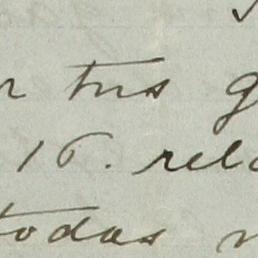 r tus g
16. rela
todas n